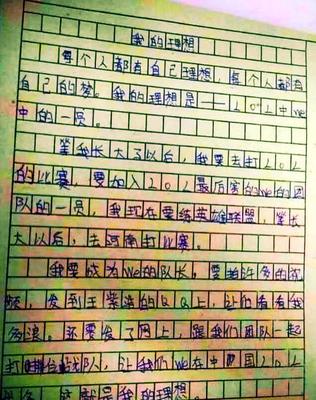 我的理想
每个人都有自己理想，每个人都有
自己的梦。我的理想是——LOL中we
中的一员。
等我长大了以后，我要去打LOL
的比赛，要加入LOL最厉害的we的团
队的一员，我现在要练英雄联盟，等长
大以后，去河南打比赛。
我要成为we的队长，要拍许多的视
频，发到王紫浩的QQ上，让他看看我
多浪。还要发了网上，跟我们团队一起
打擂台战队，让我们we在中国LOL
就是我的理想。